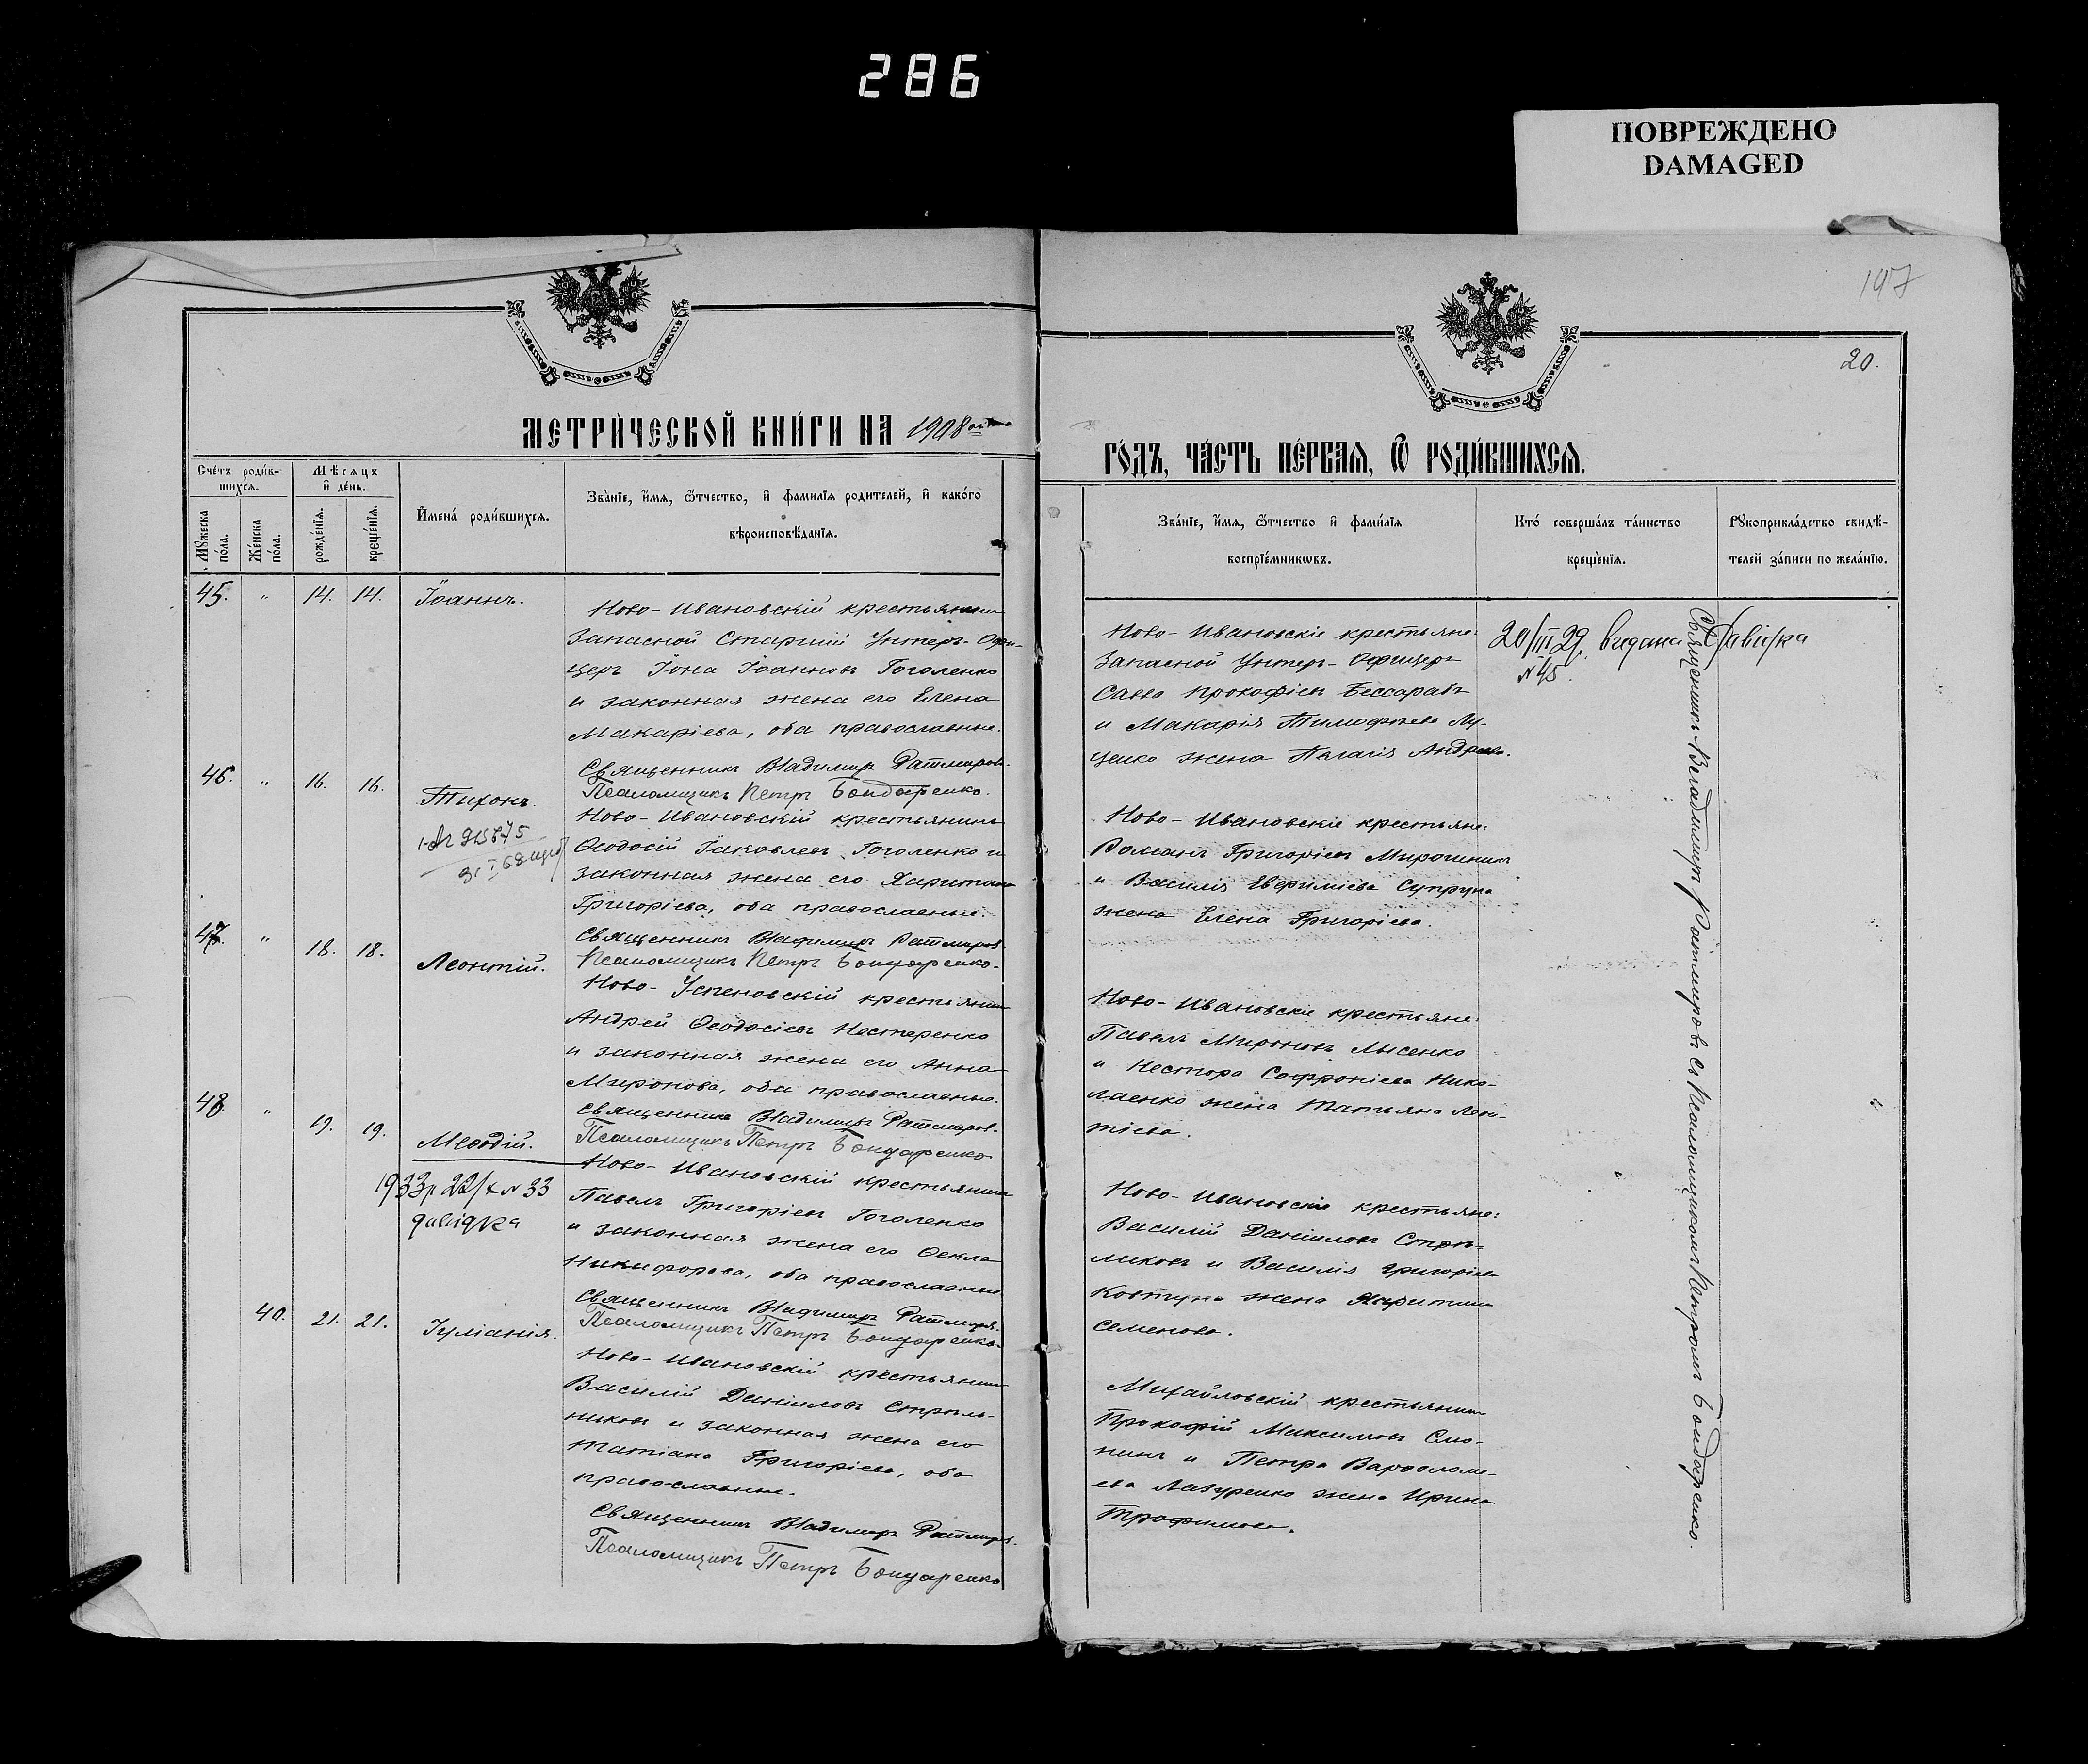 286
ПОВРЕЖДЕНО
DAMAGED
197
20.
МЕТРИ́ЧЕСКОЙ КНИ́ГИ НА 1908
ГО́ДЪ, ЧА́СТЬ ПЕ́РВАЯ, Ѿ РОДИ́ВШИХСЯ.
Сче́тъ роди́в-
шихся.
Мѣ́сяцъ
и҆ де́нь.
Мꙋжеска по́ла.
Же́нска по́ла.
рожде́нїя.
креще́нїя.
И҆мена́ роди́вшихся.
Зва́нїе, и҆́мя, ѻ҆́тчество, и҆ фами́лїя родителей, и҆ како́го
вѣроисповѣ́данїя.
Зва́нїе, и҆́мя, ѻ҆́тчество и҆ фами́лїя
воспрїе́мникѡвъ.
Кто̀ соверша́лъ та́инство
креще́нїя.
Рꙋкоприкла́дство свидѣ́-
телей за́писи по жела́нїю.
45. " 14. 14. Іоаннъ.
Ново-Ивановскій крестьянинъ
Запасной Старшій Унтеръ-Офи-
церъ Іона Іоанновъ Гоголенко
и законная жена его Елена
Макаріева, оба православные.
Священникъ Владимиръ Ратмировъ.
Псаломщикъ Петръ Бондаренко.
Ново-Ивановскіе крестьяне:
Запасной Унтеръ-Офицеръ
Савва Прокофіевъ Бессарабъ
и Макарія Тимофѣева Лу-
ценко жена Пелагія Андреева.
20/III 29. видана Довідка
N 45.
Священникъ Владимиръ Ратмировъ съ Псаломщикомъ Петромъ Бондаренко.
46. " 16. 16. Тихонъ.
Ново-Ивановскій крестьянинъ
Ѳеодосій Іаковлевъ Гоголенко и
законная жена его Харитина
Григоріева, оба православные.
Священникъ Владимиръ Ратмировъ.
Псаломщикъ Петръ Бондаренко.
Ново-Ивановскіе крестьяне:
Романъ Григоріевъ Мирошникъ
и Василія Евфиміева Супруна
жена Елена Григоріева.
47. " 18. 18. Леонтій.
Ново-Успеновскій крестьянинъ
Андрей Ѳеодосіевъ Нестеренко
и законная жена его Анна
Миронова, оба православные.
Священникъ Владимиръ Ратмировъ.
Псаломщикъ Петръ Бондаренко
Ново-Ивановскіе крестьяне:
Павелъ Мироновъ Лысенко
и Нестора Софроніева Нико-
лаенко жена Татьяна Леон-
тіева.
48. " 19. 19. Меѳодій.
1933р 22/X N 33
довідка
Ново-Ивановскій крестьянинъ
Павелъ Григоріевъ Гоголенко
и законная жена его Ѳекла
Никифорова, оба православные
Священникъ Владимиръ Ратмиров.
Псаломщикъ Петръ Бондаренко
Ново-Ивановскіе крестьяне:
Василій Даніиловъ Стрѣль-
никовъ и Василія Григоріева
Ковтуна жена Харитина
Семенова.
40. 21. 21. Іуліанія.
Ново-Ивановскій крестьянинъ
Василій Даніиловъ Стрѣль-
никовъ и законная жена его
Татіана Григоріева, оба
православные.
Священникъ Владимиръ Ратмиров.
Псаломщикъ Петръ Бондаренко
Михайловскій крестьянинъ
Прокофій Максимовъ Смо-
нинъ и Петра Варѳоломе-
ева Лазуренко жена Ирина
Трофимова.